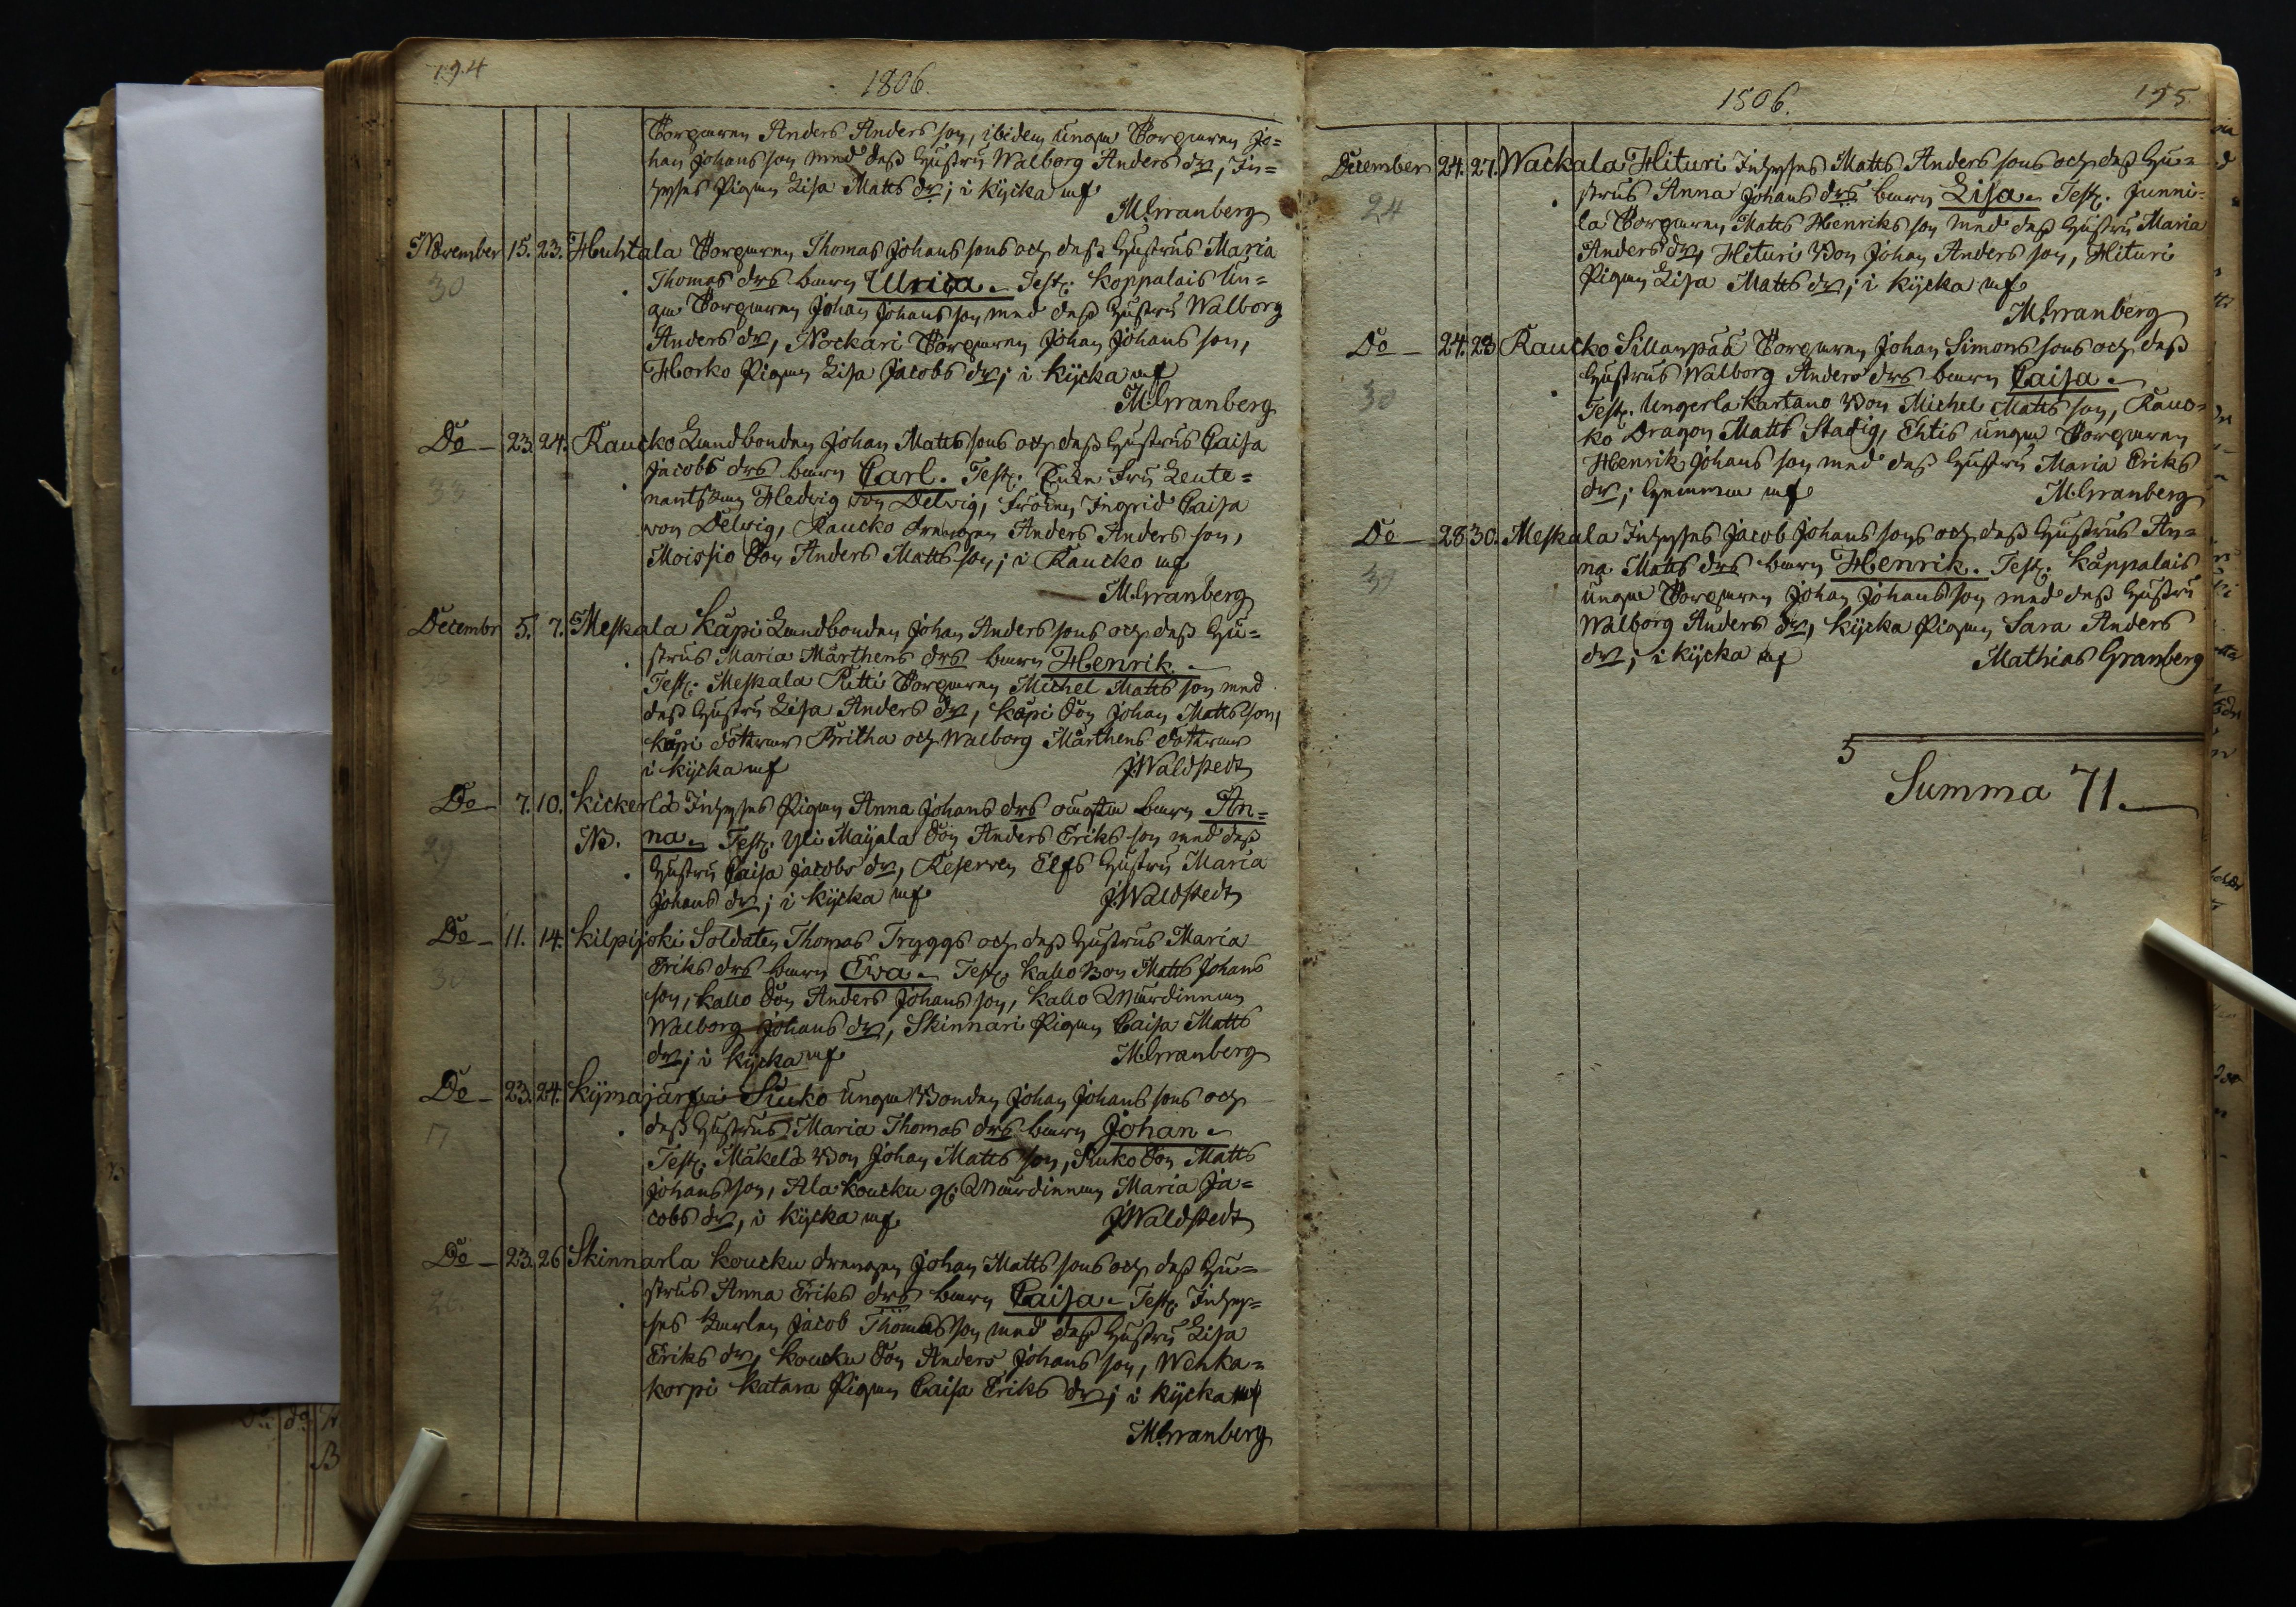 194
1806.
Torparen Anders Anders son, ibidem unga Torparen Jo=
han Johans son med dess Hustru Walborg Anders dr, In=
hyses Pigan Lisa Matts dr; i Kycka mf
M:Granberg
November 15. 23. Huhtala Torparen Thomas Johans sons och dess Hustrus Maria
30
Thomas drs barn Ulrica. Test: Koppalais Un=
ga Torparen Johan Johans son med dess Hustru Walborg
Anders dr, Nockari Torparen Johan Johans son,
Horko Pigan Lisa Jacobs dr; i Kycka mf
M.Granberg
Do 23. 24. Raucko Landbonden Johan Matts sons och dess Hustrus Caisa
33
Jacobs drs barn Carl. Test: Enke Fru Leute=
nantskan Hedvig von Delvig, Fröken Ingrid Caisa
von Delvig, Raucko drengen Anders Anders son,
Moissio Son Anders Matts son; i Raucko mf
M.Granberg
Decembr 5. 7. Meskala Käpi Landbonden Johan Anders sons och dess Hu=
strus Maria Mårthens drs barn Henrik
Test: Meskala Ritti Torparen Michel Matts son med
dess Hustru Lisa Anders dr, Käpi Son Johan Matts son,
Käpi döttrarne Britha och Walborg Mårthens döttrar
i Kycka mf J:Waldstedt
Do 7. 10. Kickerlä Inhyses Pigan Anna Johans drs oägta barn An=
29
NB. na. Test: Yli Maijala Son Anders Eriks son med dess
Hustru Caisa Jacobs dr, Reserven Elfs Hustru Maria
Johans dr; i Kycka mf J:Waldstedt
Do 11. 14. Kilpijoki Soldaten Thomas Tryggs och dess Hustrus Maria
30
Eriks drs barn Ewa. Test: Kallo Bon Matts Johans
son, Kallo Son Anders Johans son, Kallo Wärdinnan
Walborg Johans dr, Skinnari Pigan Caisa Matts
dr; i Kycka mf M.Granberg
Do 23. 24. Kijmajärfwi Suko unga Bonden Johan Johans sons och
17
dess Hustrus Maria Thomas drs barn Johan
Test: Mäkelä Bon Johan Matts son, Suko Son Matts
Johans son, Ala Koucku g: Wärdinnan Maria Ja=
cobs dr, i Kycka mf J:Waldstedt
Do 23. 26 Skinnarla Koucku drengen Johan Matts sons och dess Hu=
26
strus Anna Eriks drs barn Caisa. Test: Inhy=
ses Karlen Jacob Thomas son med dess Hustru Lisa
Eriks dr, Koucku Son Anders Johans son, Wehka=
korpi Katara Pigan Caisa Eriks dr; i Kycka mf
M:Granberg
1806.
195.
December 24. 27. Wackala Hituri Inhyses Matts Anders sons och dess Hu=
24
strus Anna Johans drs barn Lisa. Test: Junni=
la Torparen Matts Henriks son med dess Hustru Maria
Anders dr, Hituri Bon Johan Anders son, Hituri
Pigan Lisa Matts dr; i Kycka mf
M:Granberg
Do 24. 28 Raucko Sillanpää Torparen Johan Simons sons och dess
30
Hustrus Walborg Anders drs barn Caisa.
Test: Ungerla Kartano Bon Michel Matts son, Rauc=
ko Dragon Matts Stadig, Ehtis unga Torparen
Henrik Johans son med dess Hustru Maria Eriks
dr; hemma mf M.Granberg
Do 28 30. Meskala Inhyses Jacob Johans sons och dess Hustrus An=
39
na Matts drs barn Henrik. Test: Käppalais
unga Torparen Johan Johans son med dess Hustru
Walborg Anders dr, Kycka Pigan Sara Anders
dr; i Kycka mf Mathias Granberg
5
Summa 71.